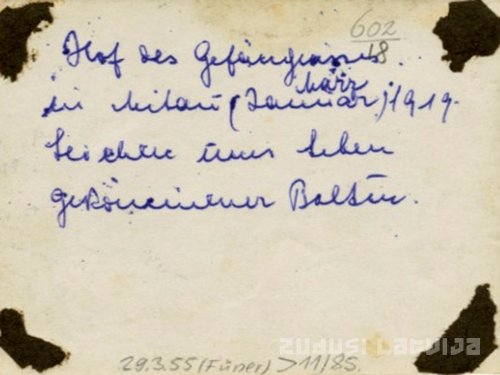 602
18
Hof des Gefängnisses.
März
in Mitau (Januar) 1919.
Leichen ums Leben
gekommener Balten.
29.3.55 (Füner) > 11/85.
ZUDUSI LATVIJA